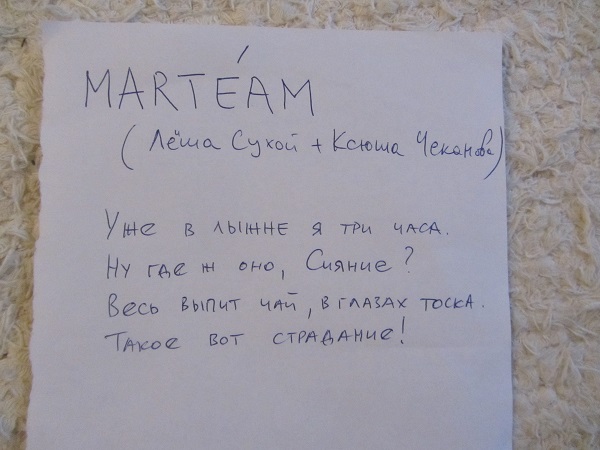 MARTÉAM
(Лёша Сухой + Ксюша Чеканова)
Уже в лыжне я три часа.
Ну где ж оно, Сияние?
Весь выпит чай, в глазах тоска.
Такое вот страдание!